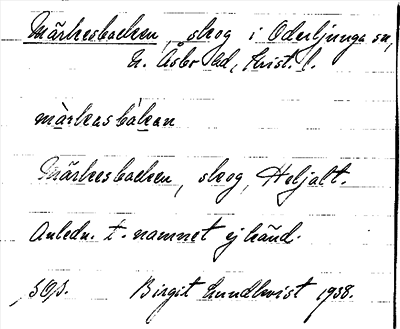 Märkesbacken, skog i Oderljunga sn,
N. Åsbo hd, Krist. l.
märkasbàkan
Märkesbacken, skog, Haljalt.
Anledn. t. namnet ej känd.
SOp. Birgit Lundkvist 1938.